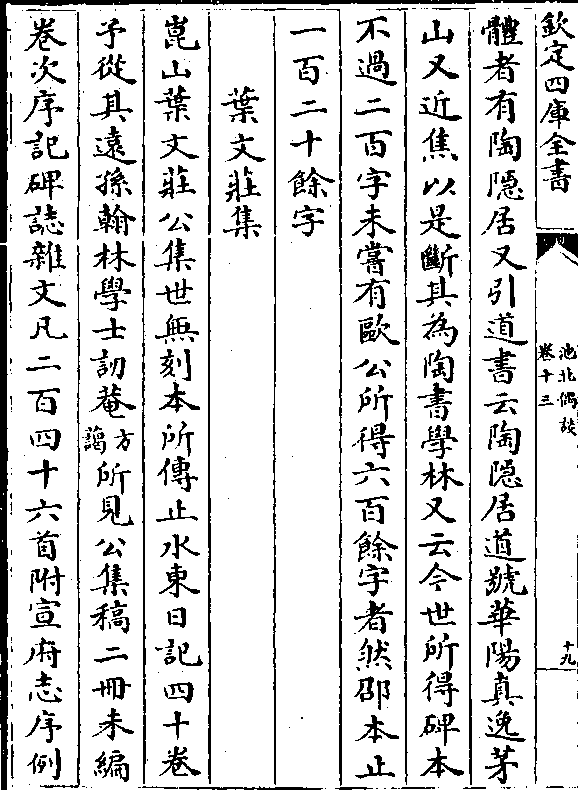 欽定四庫全書
池北偶談
卷十三
十九
體者有陶隱居又引道書云陶隱居道號華陽真逸茅
山又近焦以是斷其為陶書學林又云今世所得碑本
不過二百字未嘗有歐公所得六百餘字者然邵本止
一百二十餘字
葉文莊集
崑山葉文莊公集世無刻本所傳止水東日記四十卷
予從其遠孫翰林學士訒菴方藹所見公集稿二冊未編
卷次序記碑誌雜文凡二百四十六首附宣府志序例